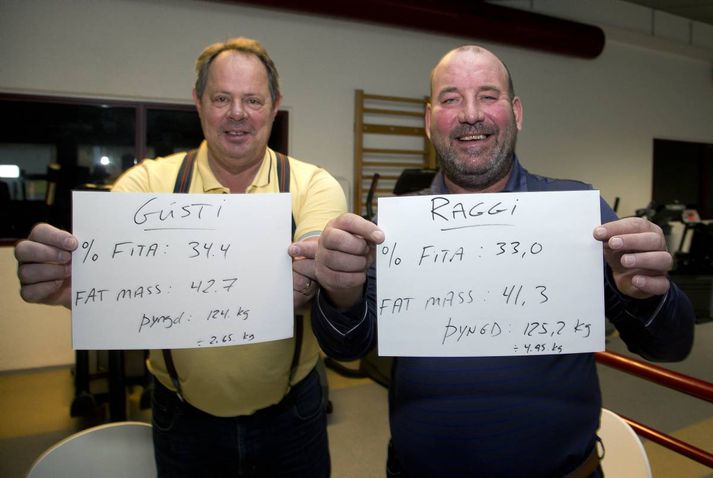 GÚSTI
% FITA: 34.4
FAT MASS: 42.7
Þyngd: 124 kg
÷ 2.65 kg
RAGGI
% FITA: 33,0
FAT MASS: 41,3
ÞYNGD: 125,2 kg
÷ 4.95 kg